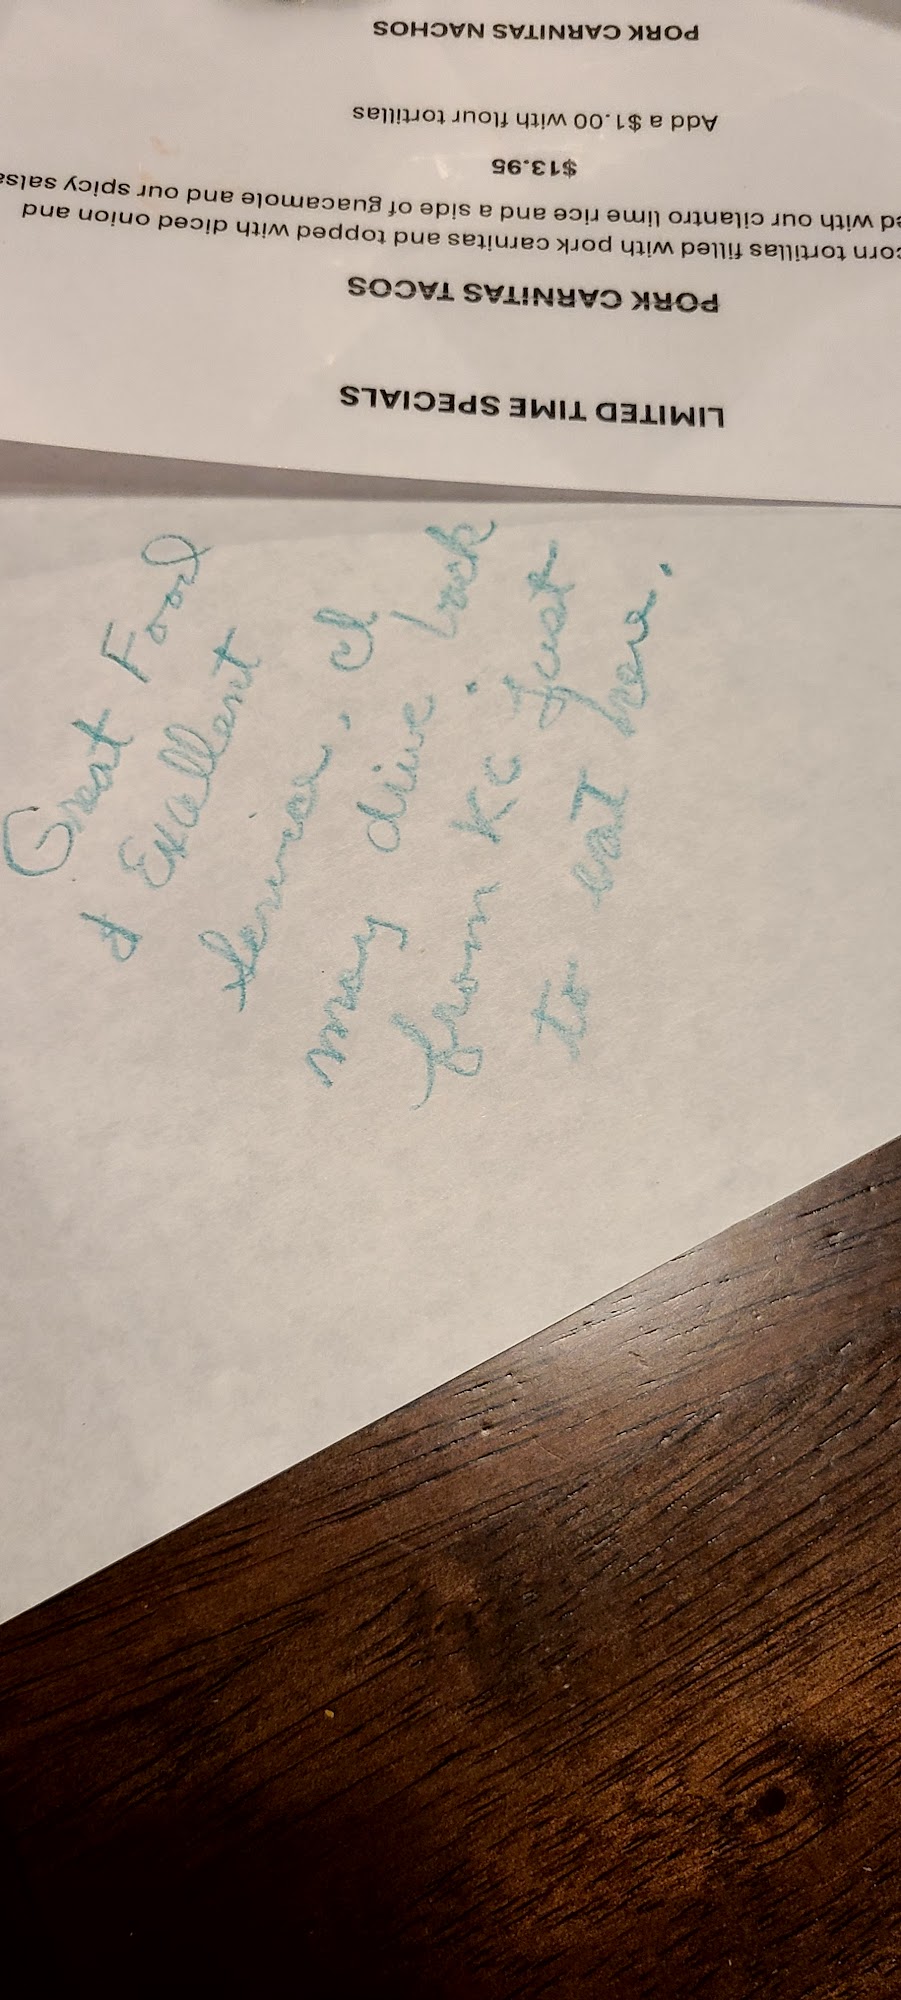 LIMITED TIME SPECIALS
PORK CARNITAS TACOS
corn tortillas filled with pork carnitas and topped with diced onion and
ed with our cilantro lime rice and a side of guacamole and our spicy salsa
$13.95
Add a $1.00 with flour tortillas
PORK CARNITAS NACHOS
Great Food
& Excellent
Service. I
may drive back
from KC just
to eat here.